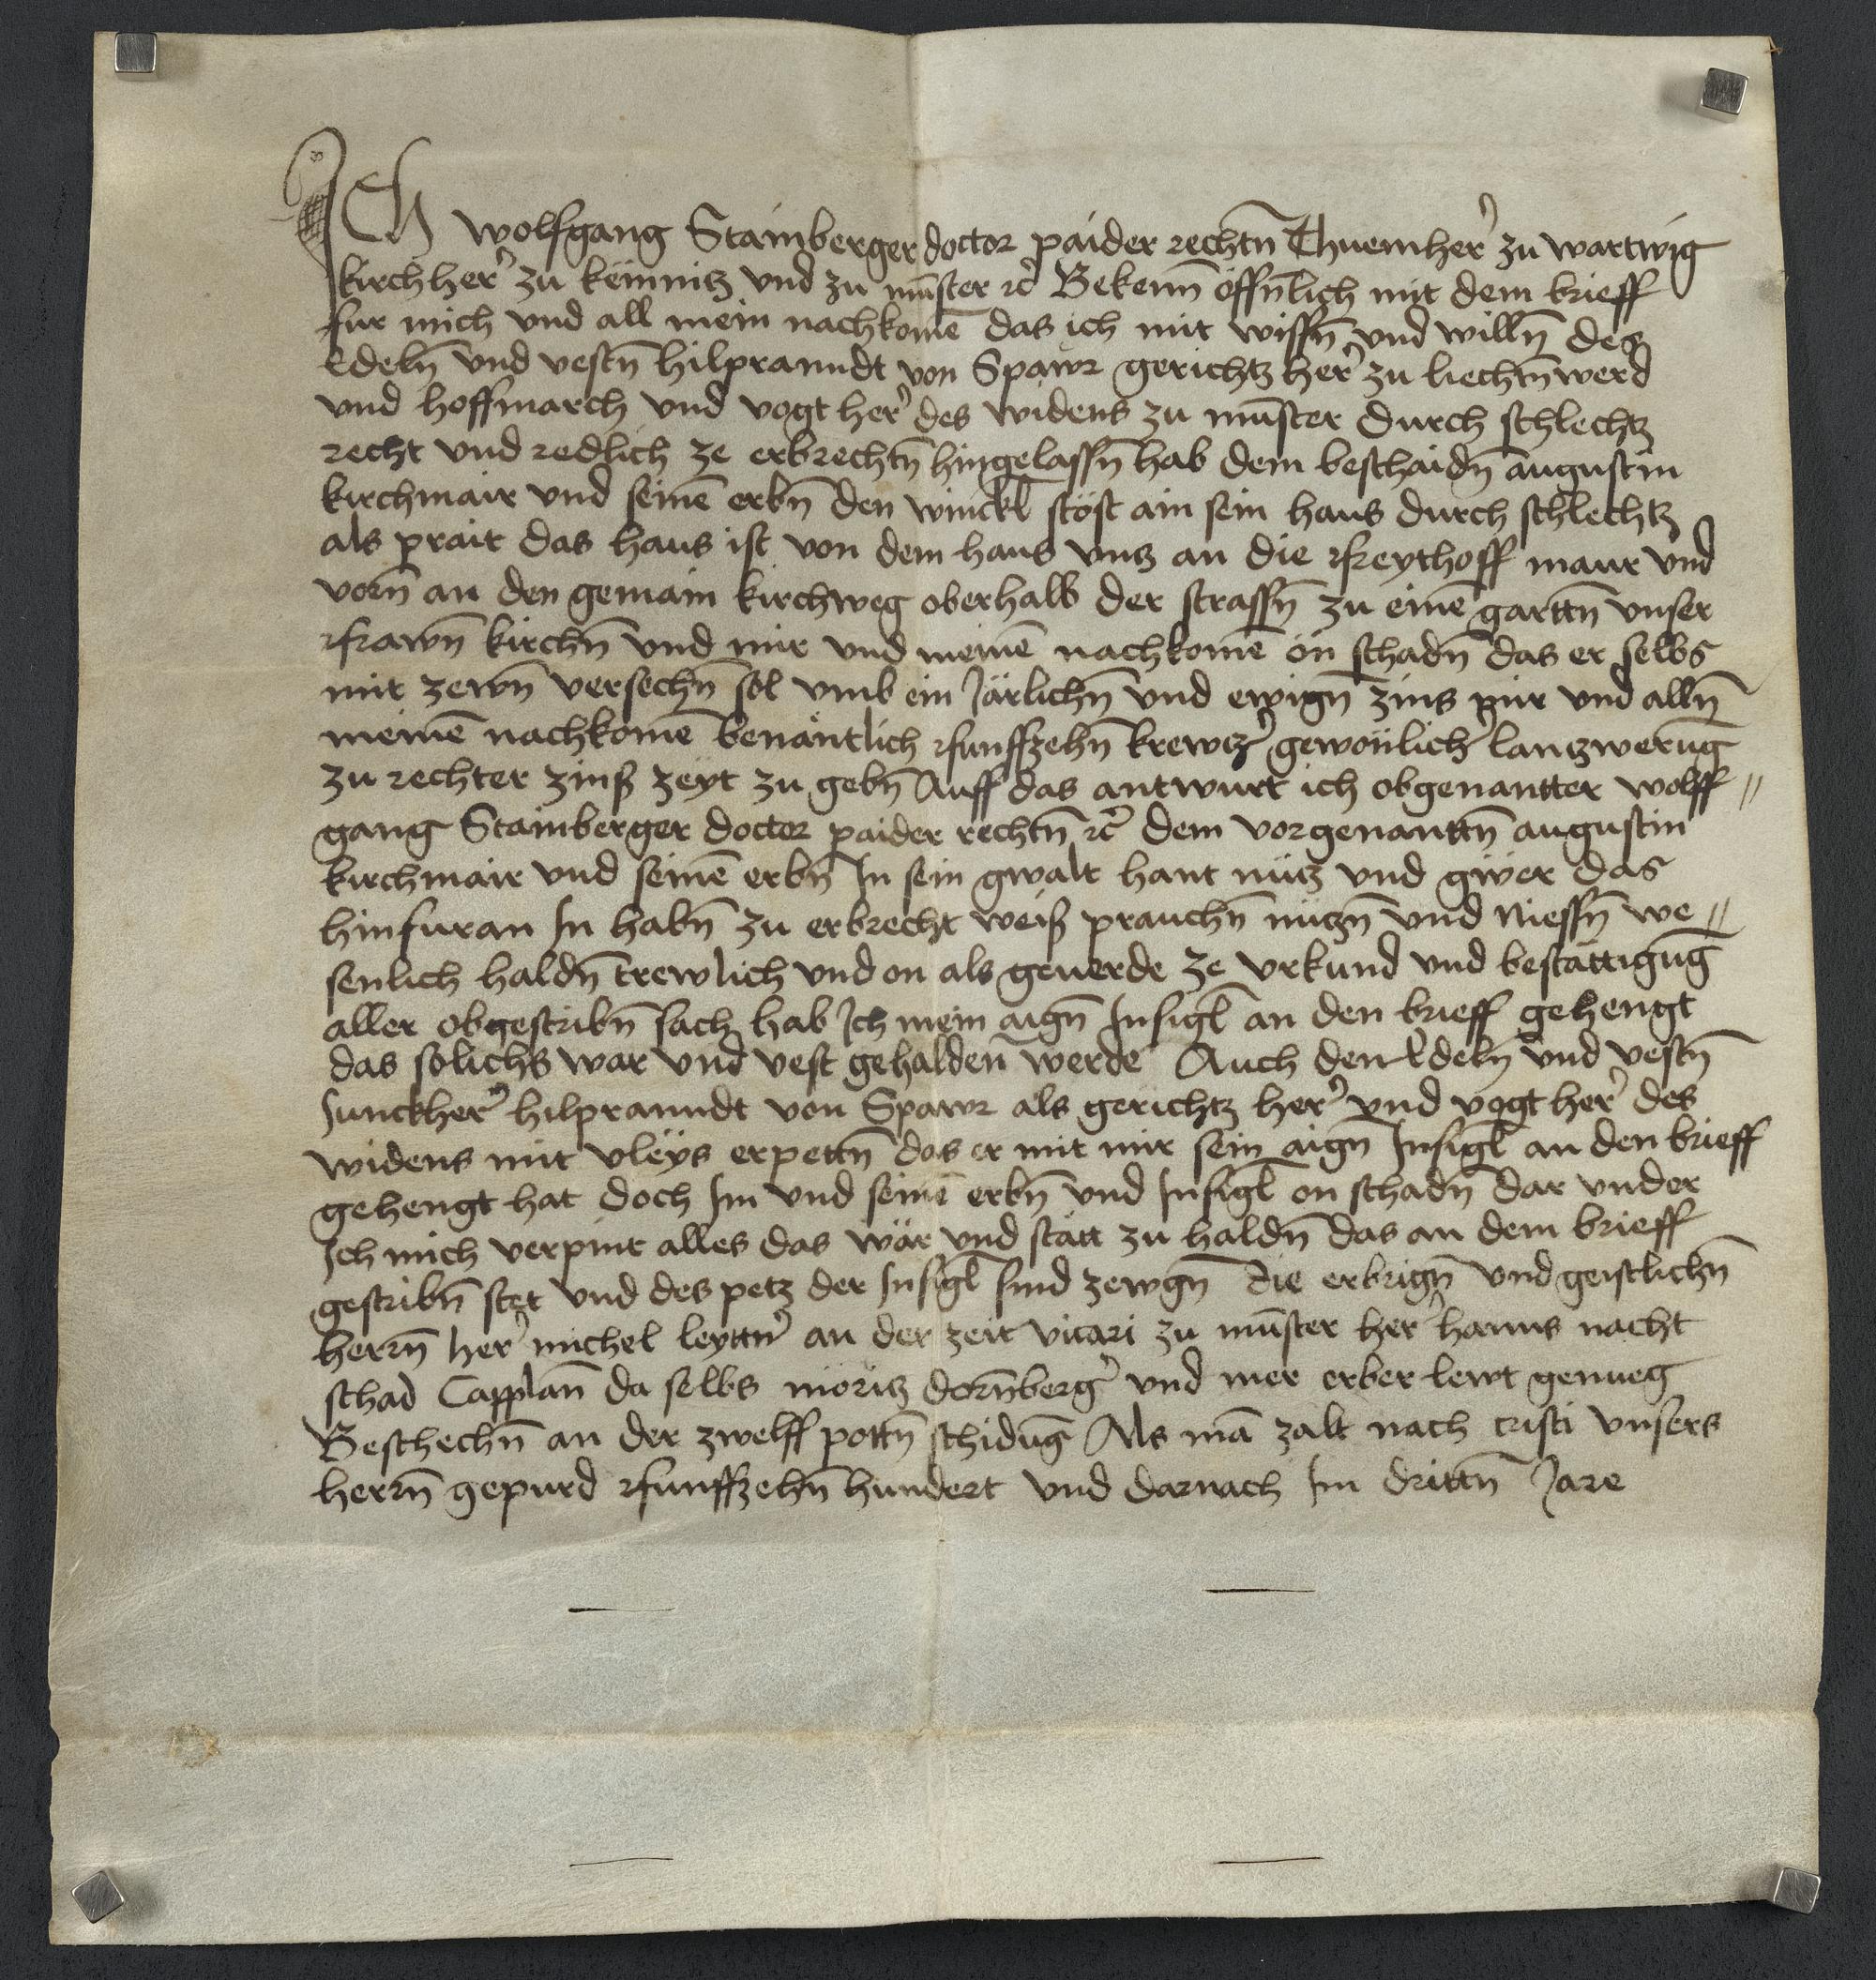 Ich wolfgang Stamberger doctor paider rechtn̄ Thuemher᷑ zu wartwig
kirchher᷑ zu kemnitz vnd zu mūster ꝛc᷑ Bekenn̄ öffnlich mit dem brieff
fur mich vnd all mein nachkomē das ich mit wissn̄ vnd willn̄ des
Edeln̄ vnd vestn̄ hilpranndt von Spawr gerichtz her᷑ zu liechtn̄werd
vnd hoffmarch vnd vogt her᷑ des widens zu mūster durch schlechtz
recht vnd redlich ze erbrechtn̄ hingelassn̄ hab dem beschaidn̄ augustin
kirchmair vnd seinē erbn̄ den winckl stöst ain sein haus durch schlechtz
als prait das haus ist von dem haus vntz an die ffreythoff maur vnd
vorn̄ an den gemain kirchweg oberhalb der strassn̄ zu einē garttn̄ vnser
ffrawn̄ kirchn̄ vnd mir vnd meinē nachkomē ön schadn̄ das er selbs
mit zewn̄ versechn̄ sol vmb ein Järlichn̄ vnd ewign̄ zins mir vnd alln̄
meinē nachkomē benäntlich ffunffzehn̄ krewtz᷑ gewönlich᷑ lantzwerūg
zu rechter zinß zeyt zu gebn̄ Auff das antwurt ich obgenantter wolff //
gang Stamberger doctor paider rechtn̄ ꝛc᷑ dem vorgenanttn̄ augustin
kirchmair vnd seinē erbn̄ In sein gwalt hant nütz vnd gwer das
hinfuran In habn̄ zu erbrecht weiß prauchn̄ nützn̄ vnd Niessn̄ we //
senlich haldn̄ trewlich vnd on als geuerde ze vrkund vnd bestättigūg
aller obgeschribn̄ sach hab Ich mein aign̄ Insigl̄ an den brieff gehengt
das solichs war vnd vest gehaldenn̄ werde Auch den Edeln̄ vnd vestn̄
Junckher᷑ hilpranndt von Spawr als gerichtz her᷑ vnd vogt her᷑ des
widens mit vleys erpettn̄ das er mit mir sein aign̄ Insigl̄ an den brieff
gehengt hat doch Im vnd seinē erbn̄ vnd Insigl̄ on schadn̄ dar vnder
Ich mich verpint alles das wär vnd stätt zu haldn̄ das an dem brieff
geschribn̄ stet vnd des petz der Insigl̄ sind zewgn̄ die erbrign̄ vnd geistlichn̄
herrn̄ her᷑ michel leyttn᷑ an der zeit vicari zu mūster her᷑ hanns nacht
schad Capplan̄ da selbs möritz dorn̄berg᷑ vnd mer erber lewt genueg
Beschechn̄ an der zwelff pottn̄ schidūg Als mā zalt nach cristi vnsers
herrn̄ gepurd ffunffzehn̄ hundert vnd darnach Im drittn̄ Jare